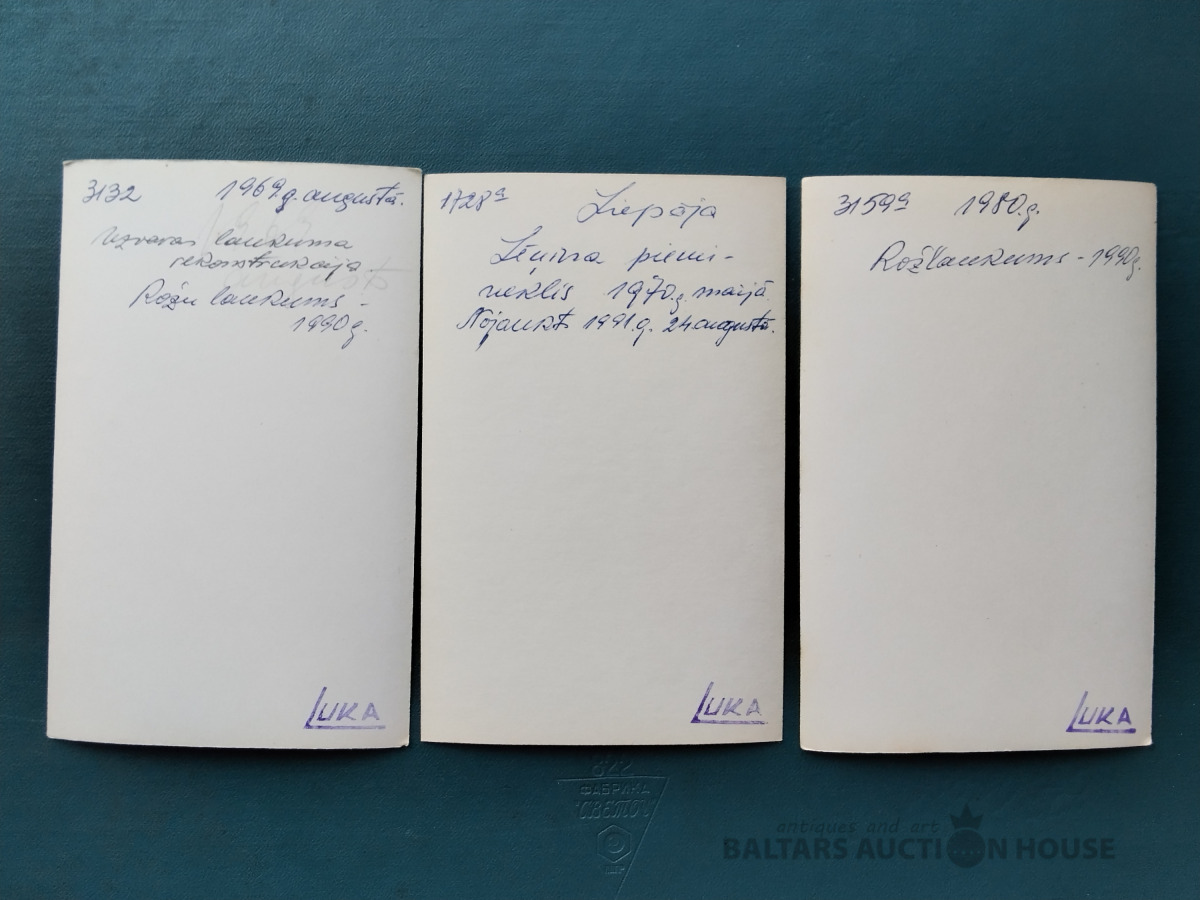 3132 1969.g. augustā.
Uzvaras laukuma
rekonstrukcija.
Rožu laukums -
1990 g.
LUKA
1728ª
Liepāja
Ļeņina piemi-
neklis 1970.g. maijā
Nojaukts 1991.g. 24 augustā.
LUKA
3159ª 1980.g.
Rožlaukums - 1990g.
LUKA
822
ФАБРИКА
СВЕТОЧ
antiques and art
BALTARS AUCTION HOUSE